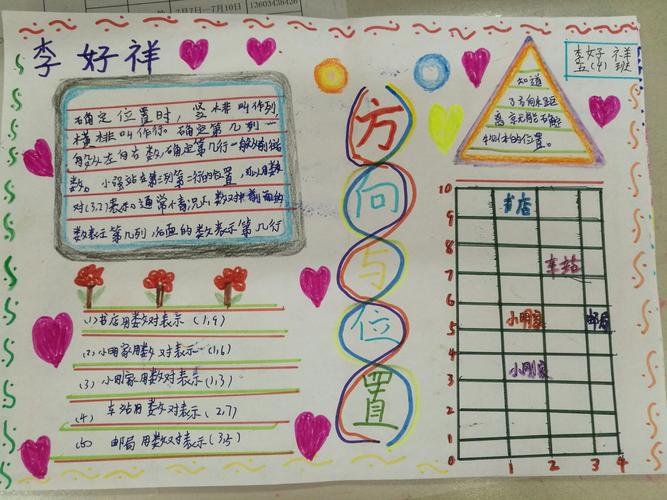 7月7日—7月10日 13603438426
李好祥
李好祥
五(4)班
确定位置时，竖排叫作列，
横排叫作行。确定第几列一
般从左往右数，确定第几行一般从前往后
数。小强站在第三列第二行的位置，可以用数
对(3,2)表示。通常情况下，数对中前面的
数表示第几列，后面的数表示第几行
知道
了方向和距
离就能确定
物体的位置。
方向与位置
(1)书店用数对表示(1,9)
(2)小明家用数对表示(1,6)
(3)小刚家用数对表示(1,3)
(4)车站用数对表示(2,7)
(5)邮局用数对表示(3,5)
10
9
8
7
6
5
4
3
2
1
0
书店
车站
小明家
邮局
小刚家
1 2 3 4